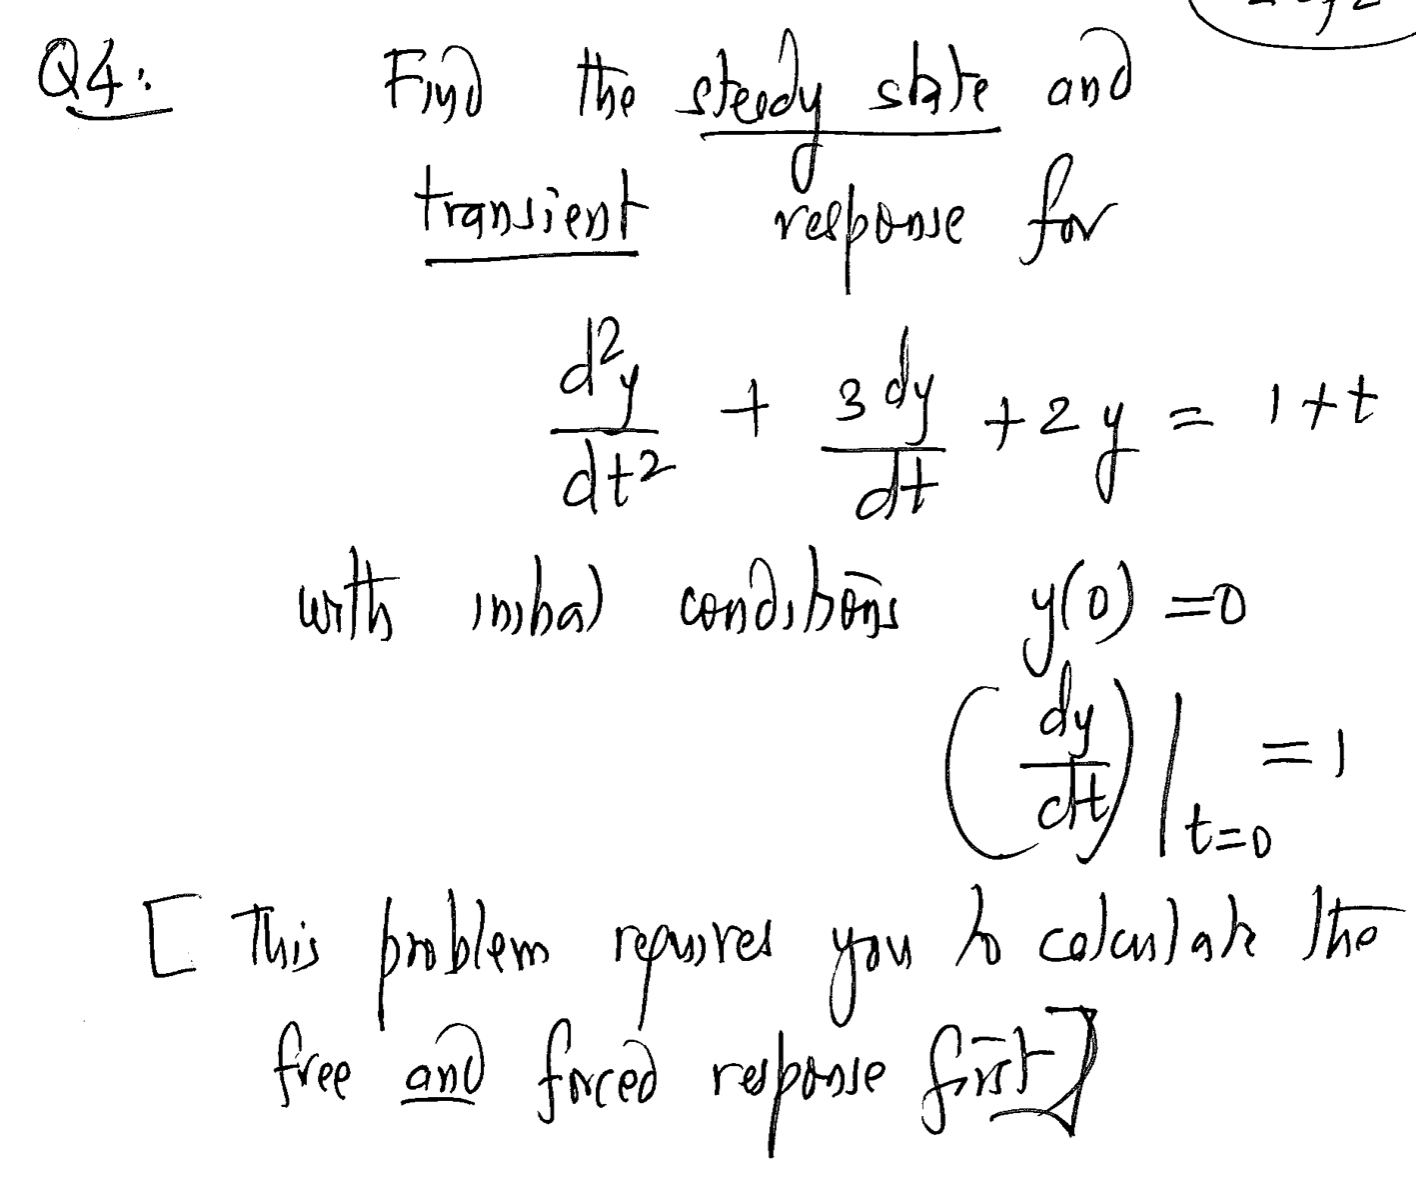 Q4: Find the steady state and
transient response for
d²y/dt² + 3dy/dt + 2y = 1+t
with initial conditions y(0) = 0
(dy/dt)|t=0 = 1
[This problem requires you to calculate the
free and forced response first]